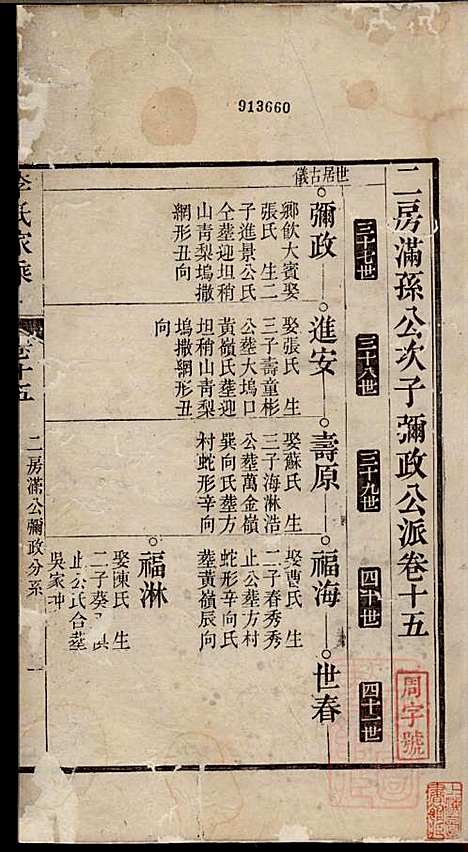 913660
二房滿孫公次子彌政公派卷十五
周字號
三十七世
三十八世
三十九世
四十世
四十一世
世居古儀
彌政
鄉飲大賓娶
張氏 生二
子進景公氏
仝塟迎坦稍
山青梨塢撒
網形丑向
進安
娶張氏 生
三子壽童彬
公塟大塢口
黃嶺氏塟迎
坦稍山青梨
塢撒網形丑
向
壽原
娶蘇氏 生
三子海淋浩
公塟萬金嶺
巽向氏塟方
村蛇形辛向
福海
娶曹氏 生
二子春秀秀
止公塟方村
蛇形辛向氏
塟黃嶺辰向
世春
福淋
娶陳氏 生
二子葵
止 公氏合塟
吳家冲
氏家乘
卷十五
二房滿公彌政分系
一